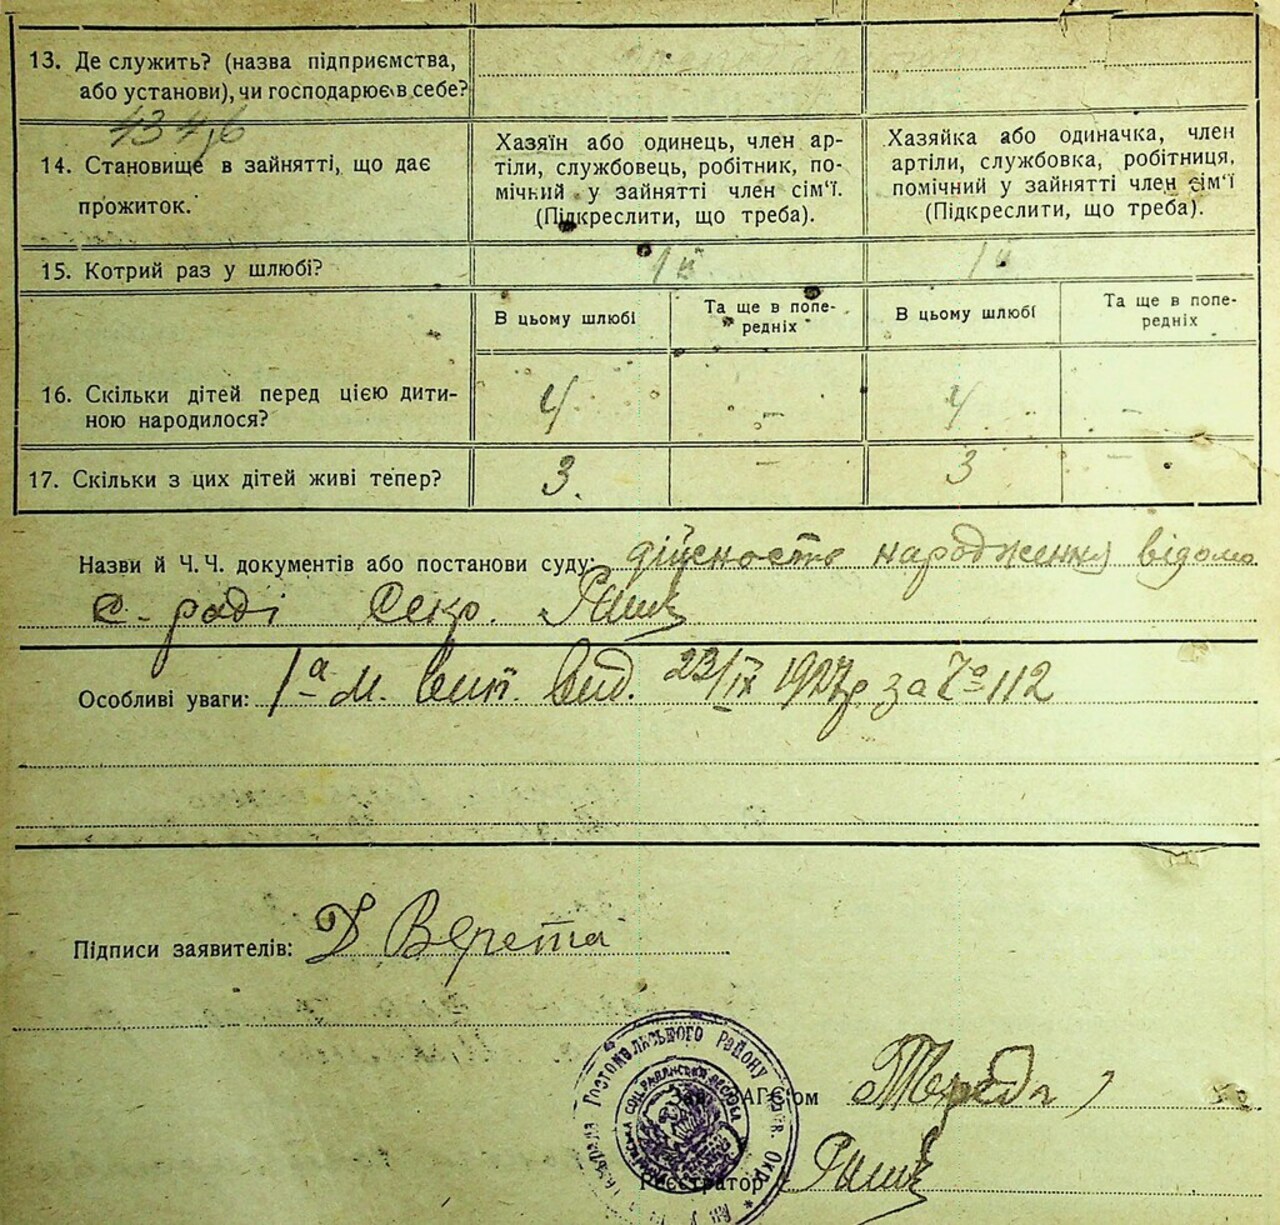 13. Де служить? (назва підприємства,
або установи), чи господарює в себе?
14. Становище в зайнятті, що дає
прожиток.
Хазяїн або одинець, член ар-
тіли, службовець, робітник, по-
мічний у зайнятті член сім'ї.
(Підкреслити, що треба).
Хазяйка або одиначка, член
артіли, службовка, робітниця,
помічний у зайнятті член сім'ї
(Підкреслити, що треба).
15. Котрий раз у шлюбі?
1й 1й
В цьому шлюбі
Та ще в попе-
редніх
В цьому шлюбі
Та ще в попе-
редніх
16. Скільки дітей перед цією дити-
ною народилося?
4 - 4 -
17. Скільки з цих дітей живі тепер?
3. - 3 -
Назви й Ч. Ч. документів або постанови суду: дійсность народження відома
с. раді Секр.
Особливі уваги: 1а М. вип. вид. 23/IX 1927р. за № 112
Підписи заявителів: Д Верета
Гостомельського Району
Зав. ЗАГС'ом
Реєстратор